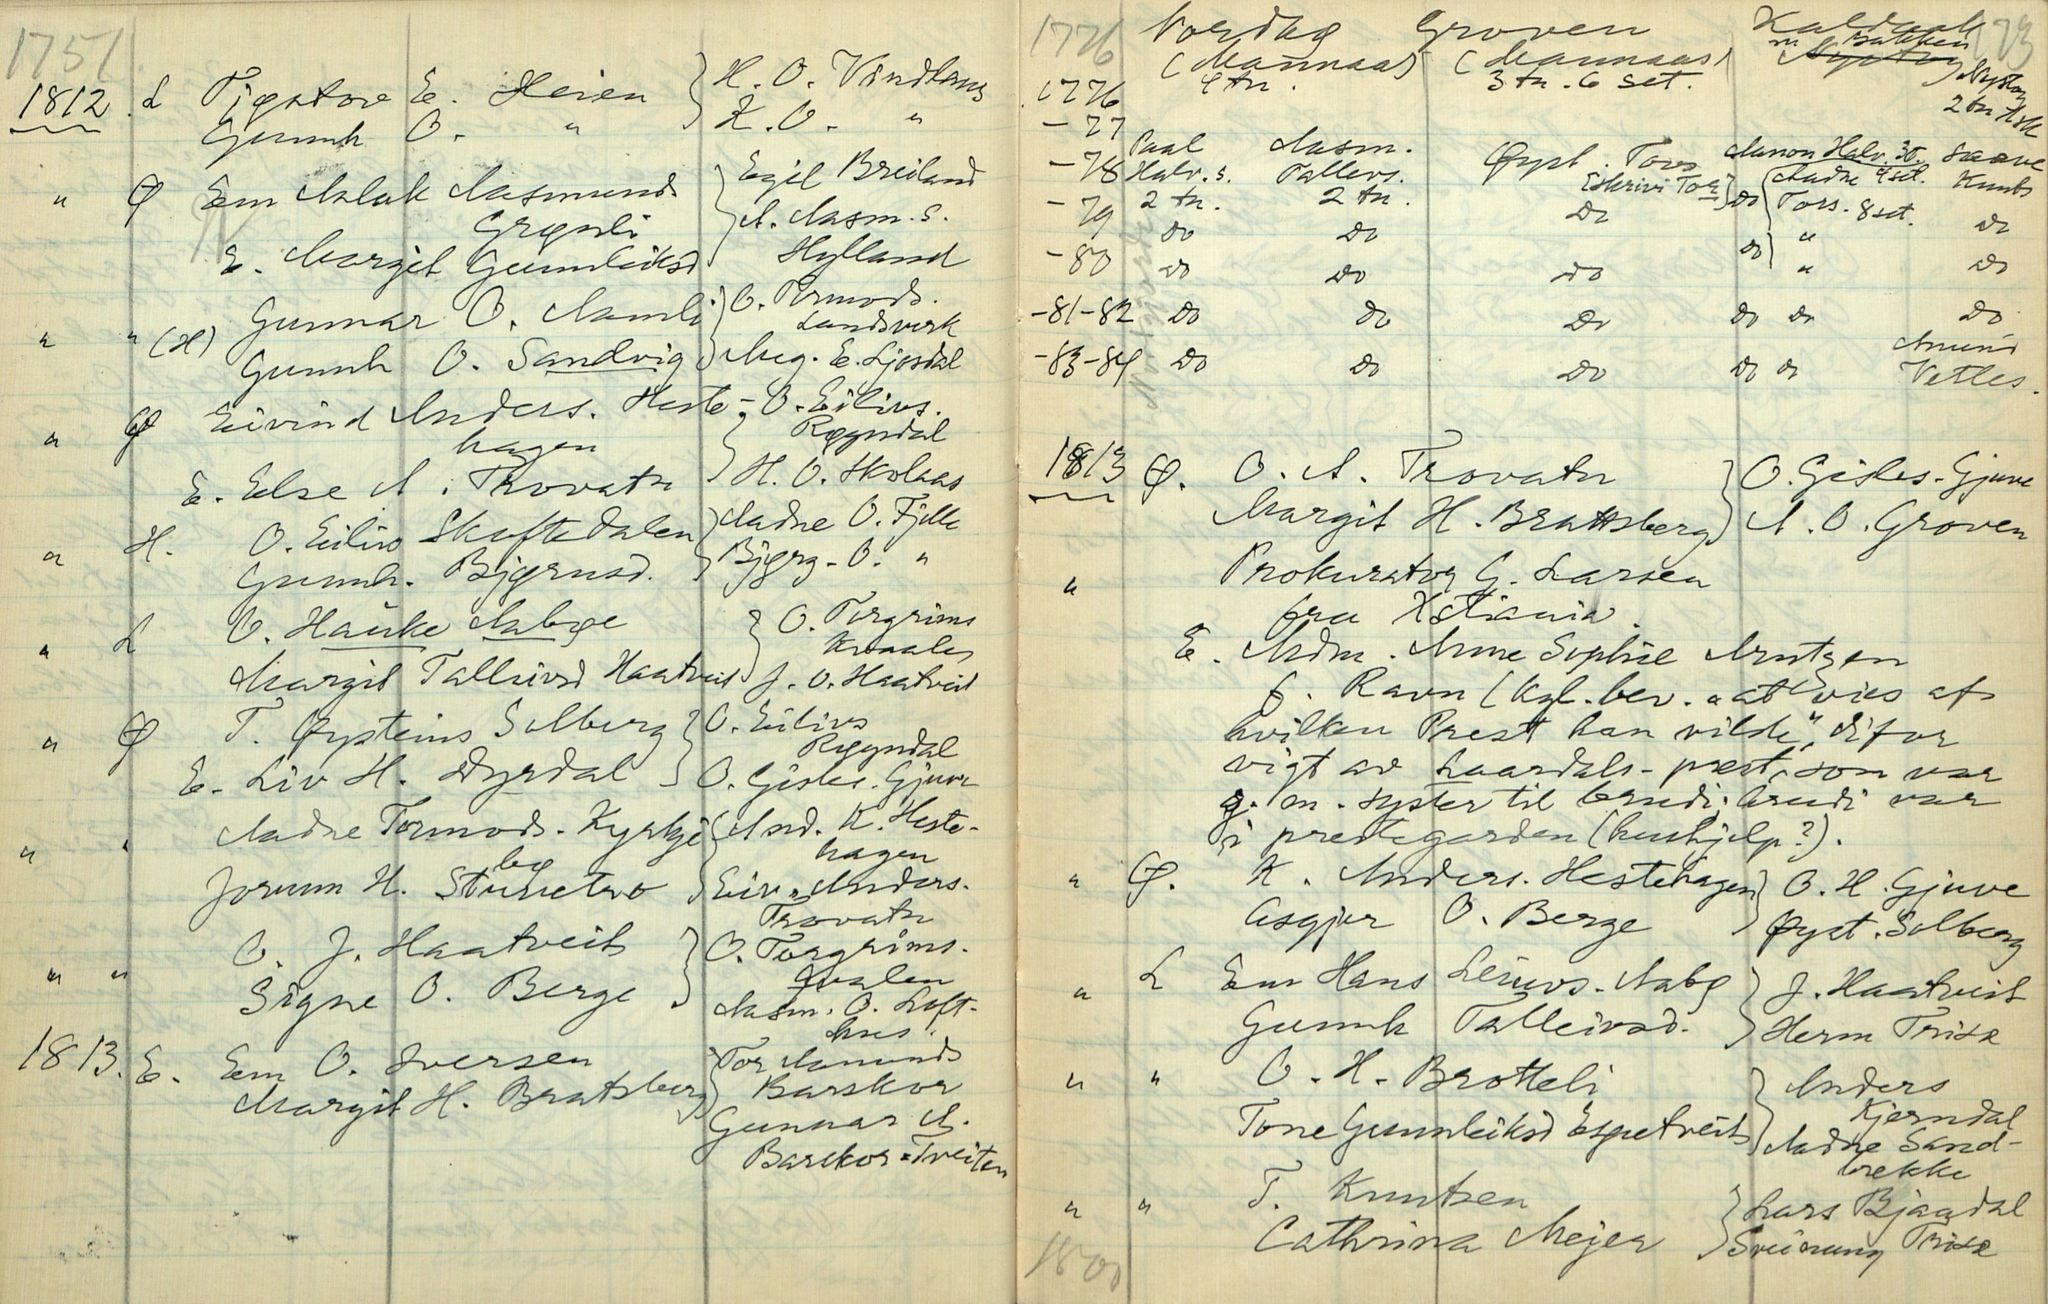 1751
1812 L Tjøstov E. Heien } H. O. Vindlaus
Gunnh O. " K. O. "
" Ø Em Aslak Aasmunds } Egil Breiland
Grønli A. Aasm. S.
E. Margit Gunnleiksd Hylland
" " (H) Gunnar O. Namli } O. Tormods.
Landsverk
Gunnh O. Sandvig Aug. E. Ljosdal
" Ø Eivind Anders. Heste- } O. Eilivs.
hagen Røyndal
E. Else A. Trovatn H. O. Skolaas
" H. O. Eilivs Skaftedalen } Aadne O. Fjelle
Gunnh. Bjørnsd. Bjørg. O. "
" L O. Hauke Aabøe } O. Torgrims
Kvaalen
Margit Talleivsd Haatveit J. O. Haatveit
" Ø T. Øysteins Solberg } O. Eilivs
Røyndal
E. Liv H. Dyrdal O. Gisles. Gjuve
" " Aadne Tormods. Kyrkje } And. K. Heste-
bø hagen
Jorunn H. Stuvetvo Eiv. Anders.
Trovatn
" " O. J. Haatveit } O. Torgrims.
Kvalen
Signe O. Berge Aasm. O. Loft-
hus.
1813. E. Em O. Iversen } Tor Aamunds
Barskor
Margit H. Bratsberg Gunnar A.
Barskor-Tveiten
1776 Vordag Groven Kaldaak 173
(Maunaas) (Maunaas) m Bakken
4 tn. 3 tn. 6 set. Nystog
2 tn Ask
1776
-77
-78 Paal Aasm. Øyst. Tors Aanon Halv. 3t. Saave
Halv. s. Tallevs. (skrivi Tor) Do { Aadne 4 set. Knuts
-79 2 tn. 2 tn. Do Tors. 8 set.
Do Do " Do
-80 Do Do Do Do " Do
-81-82 Do Do Do Do Do Do
-83-84 Do Do Do Do Do Amund
Vetles.
1813 Ø. O. A. Trovatn } O. Gisles. Gjuve
Margit H. Brattsberg A. O. Groven
" Prokurator G. Larsen
fra Xstiania.
E. Mdm. Anne Sophie Arntzen
f. Ravn (kgl. bev. "at vies af
hvilken Prest han vilde", difor
vigt av Laardals-prest, som var
g. m. syster til brudi; brudi var
i prestegarden (hushjelp?).
" Ø. K. Anders. Hestehagen } O. H. Gjuve
Asgjer O. Berge Øyst. Solberg
" L Em Hans Leivs. Aabø } J. Haatveit
Gunnh Talleivsd. Herm Trisæ
" " O. H. Brotteli } Anders
Kjerndal
Tone Gunnleiksd Espetveit Aadne Sand-
brekke
" " T. Knutsen } Lars Bjaadal
Cathrina Mejer Sveinung Trisæ
1800